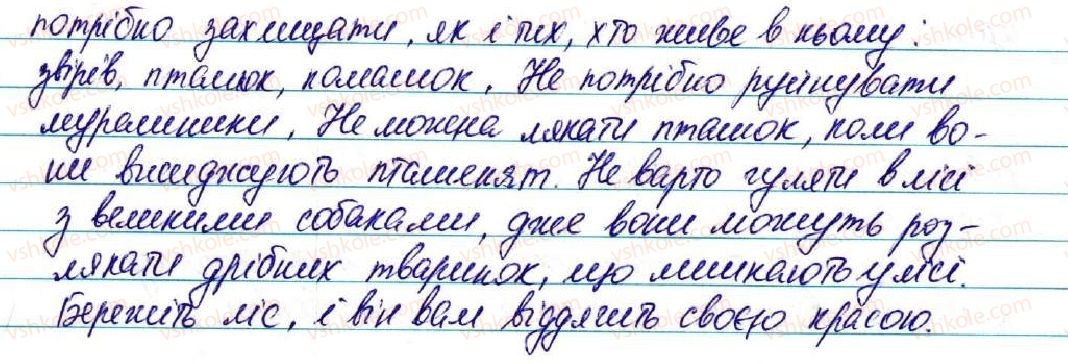 потрібно захищати, як і тих, хто живе в ньому:
звірів, пташок, комашок. Не потрібно руйнувати
мурашники. Не можна лякати пташок, коли во-
ни висиджують пташенят. Не варто гуляти в лісі
з великими собаками, дже вони можуть роз-
лякати дрібних тваринок, що мешкають у лісі.
Бережіть ліс, і він вам віддячить своєю красою.
vshkole.com